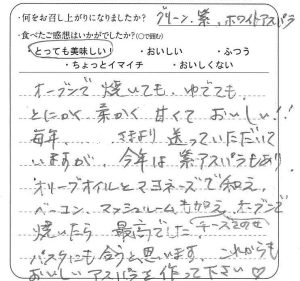 ・何をお召し上がりになりましたか？ グリーン、紫、ホワイトアスパラ
・食べたご感想はいかがでしたか？(○で囲む)
・とっても美味しい！ ・おいしい ・ふつう
・ちょっとイマイチ ・おいしくない
オーブンで焼いても、ゆでても、
とにかく柔かく甘くておいしい!!
毎年、 さまより送っていただいて
いますが、今年は紫アスパラもあり、
オリーブオイルとマヨネーズで和え、
ベーコン、マッシュルームも加え、オーブンで
焼いたら最高でした。チーズをのせ
パスタにも合うと思います。これからも
おいしいアスパラを作って下さい♡